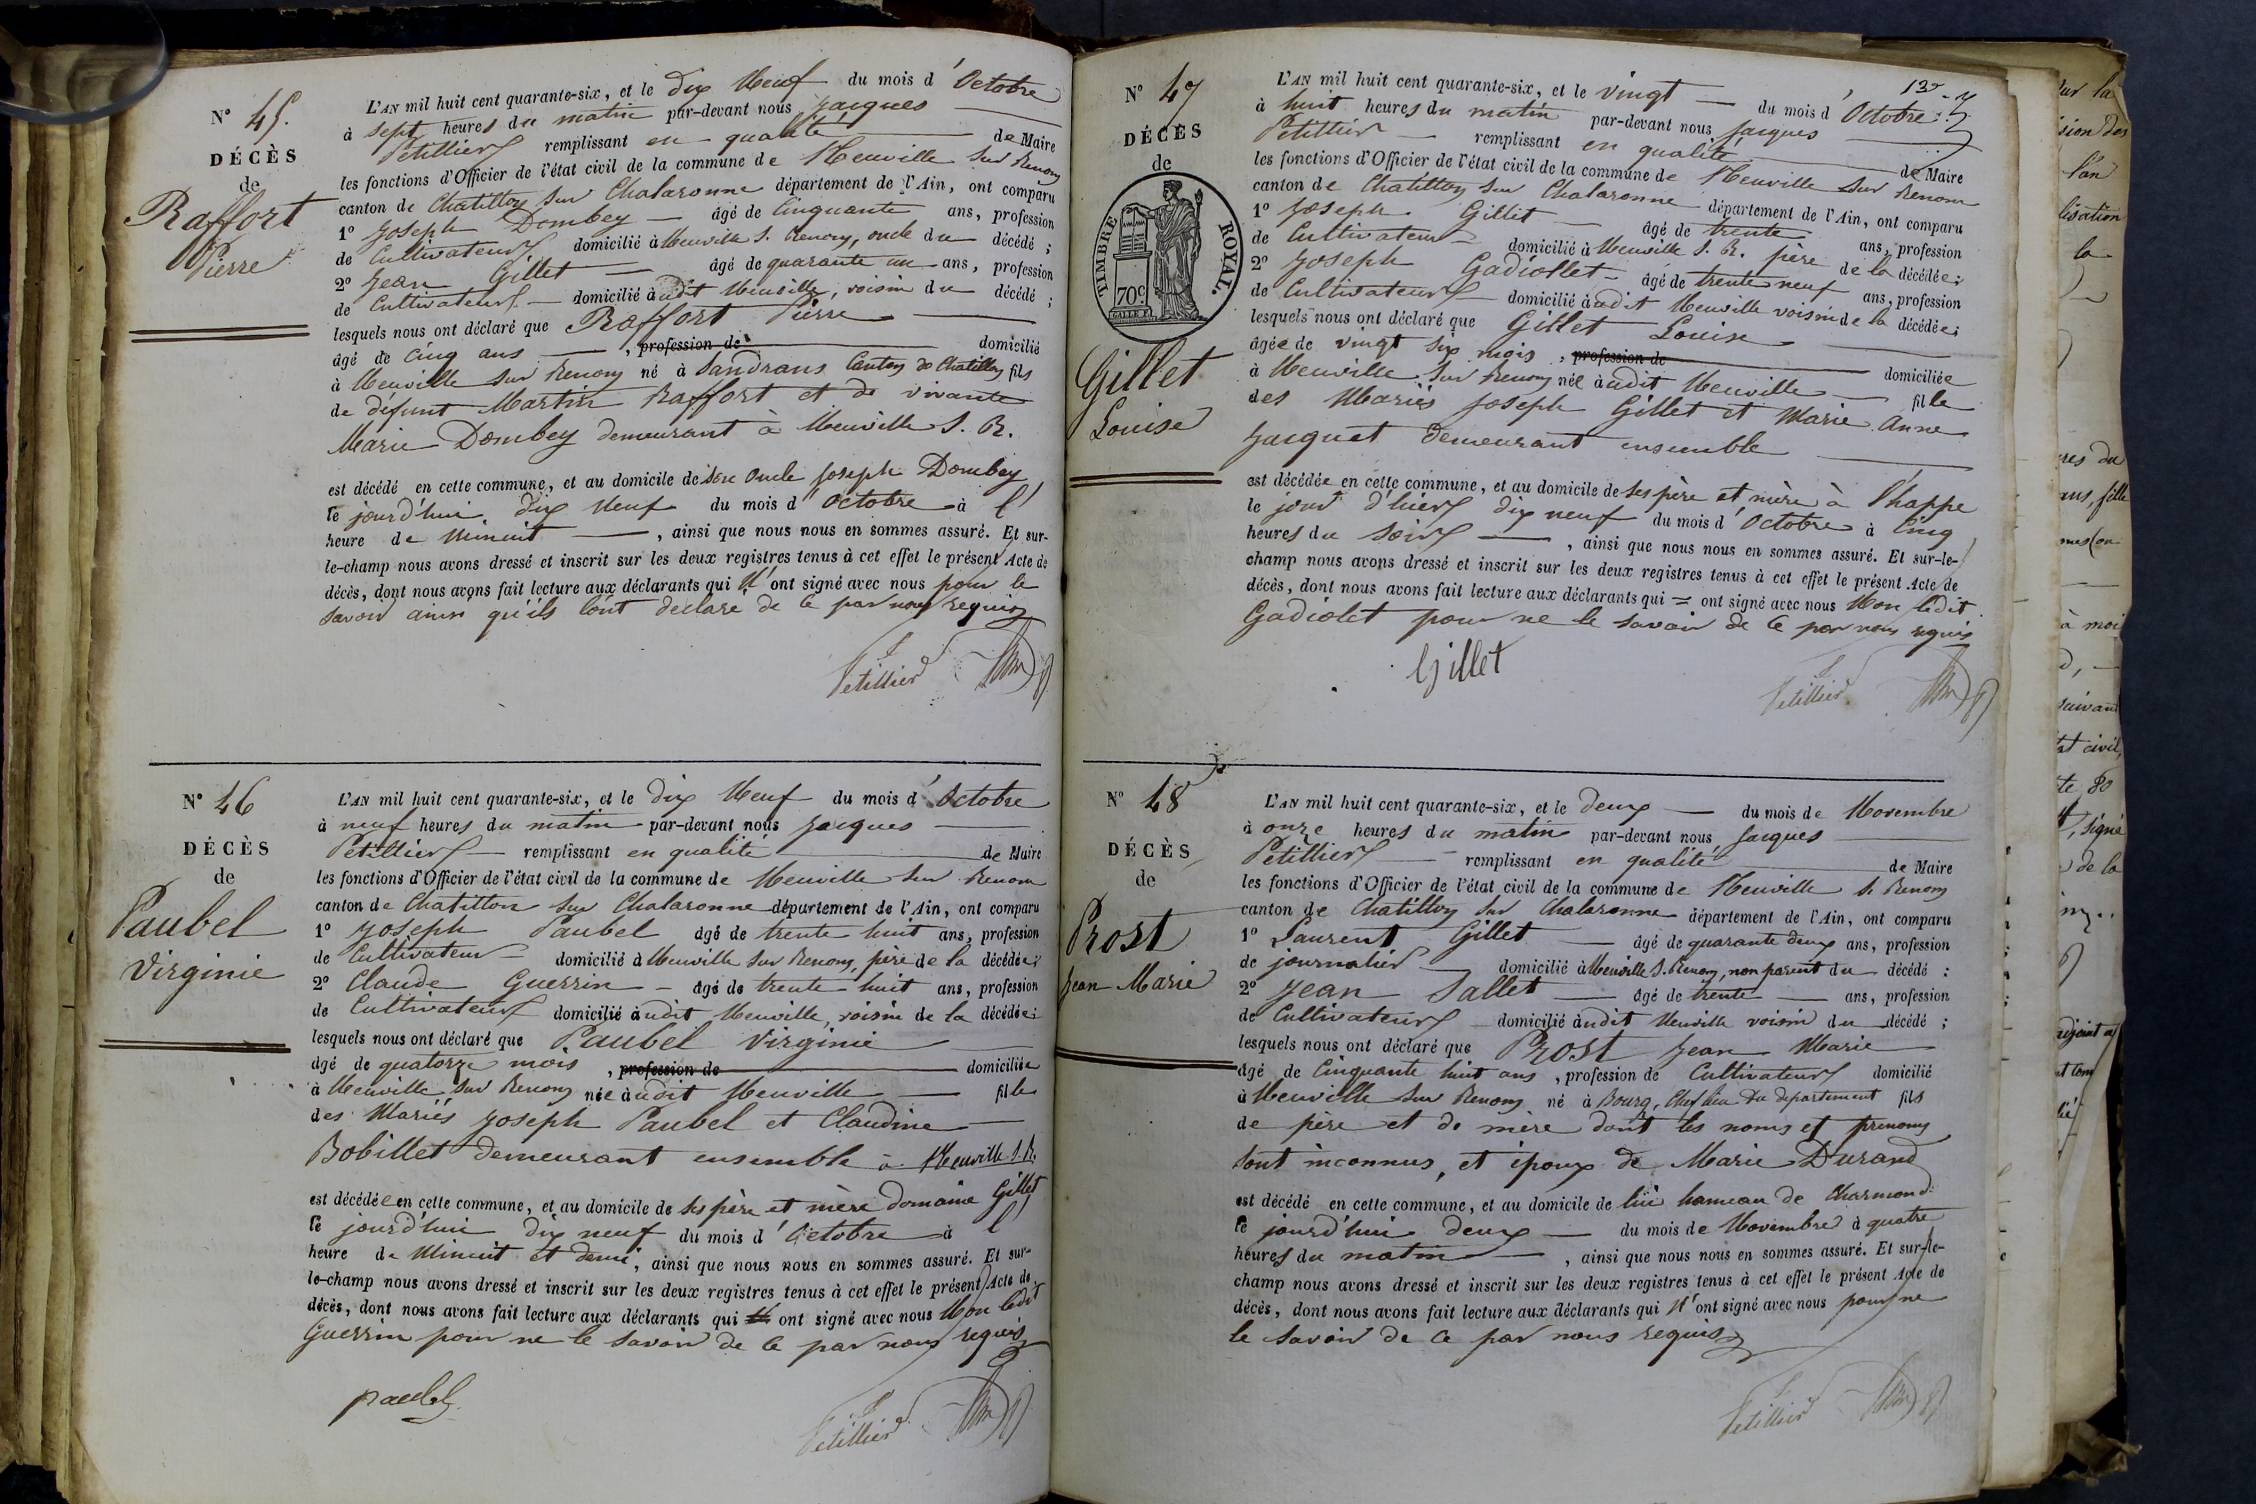 N° 45.
DÉCÈS
de
Raffort
Pierre
L'AN mil huit cent quarante-six, et le dix Neuf du mois d'Octobre
à sept heures du matin par-devant nous Jacques
Petillier remplissant en qualité de Maire
les fonctions d'Officier de l'état civil de la commune de Neuville sur Renom
canton de Chatillon sur Chalaronne département de l'Ain, ont comparu
1° Joseph Dombey âgé de Cinquante ans, profession
de Cultivateur domicilié à Neuville S. Renom, oncle du décédé ;
2° Jean Gillet âgé de quarante un ans, profession
de Cultivateur domicilié audit Neuville, voisin du décédé ;
lesquels nous ont déclaré que Raffort Pierre
âgé de Cinq ans , profession de domicilié
à Neuville sur Renom né à Sandrans Canton de Chatillon fils
de défunt Martin Raffort et de vivante
Marie Dombey demeurant à Neuville S. R.
est décédé en cette commune, et au domicile de son oncle Joseph Dombey
le jourd'hui dix Neuf du mois d'Octobre à l'
heure de Minuit , ainsi que nous nous en sommes assuré. Et sur-
le-champ nous avons dressé et inscrit sur les deux registres tenus à cet effet le présent Acte de
décès, dont nous avons fait lecture aux déclarants qui N'ont signé avec nous pour le
savoir ainsi qu'ils l'ont declaré de ce par nous requis
Petillier
N° 46
DÉCÈS
de
Paubel
Virginie
L'AN mil huit cent quarante-six, et le dix Neuf du mois d'Octobre
à neuf heures du matin par-devant nous Jacques
Petillier remplissant en qualité de Maire
les fonctions d'Officier de l'état civil de la commune de Neuville sur Renom
canton de Chatillon sur Chalaronne département de l'Ain, ont comparu
1° Joseph Paubel âgé de trente huit ans, profession
de Cultivateur domicilié à Neuville sur Renom, père de la décédée ;
2° Claude Guerrin âgé de trente huit ans, profession
de Cultivateur domicilié audit Neuville, voisin de la décédée ;
lesquels nous ont déclaré que Paubel Virginie
âgé de quatorze mois , profession de domiciliée
à Neuville sur Renom née audit Neuville fille
des Mariés Joseph Paubel et Claudine
Bobillet demeurant ensemble à Neuville S. R.
est décédée en cette commune, et au domicile de ses père et mère domaine Gillet
le jourd'hui dix neuf du mois d'Octobre à l
heure de Minuit et demi, ainsi que nous nous en sommes assuré. Et sur-
le-champ nous avons dressé et inscrit sur les deux registres tenus à cet effet le présent Acte de
décès, dont nous avons fait lecture aux déclarants qui ont signé avec nous Non ledit
Guerrin pour ne le savoir de ce par nous requis
paubel
Petillier
N° 47
DÉCÈS
de
TIMBRE ROYAL.
70c
Gillet
Louise
L'AN mil huit cent quarante-six, et le vingt du mois d'Octobre
à huit heures du matin par-devant nous Jacques
Petillier remplissant en qualité de Maire
les fonctions d'Officier de l'état civil de la commune de Neuville sur Renom
canton de Chatillon sur Chalaronne département de l'Ain, ont comparu
1° Joseph Gillet âgé de trente ans, profession
de Cultivateur domicilié à Neuville S. R. père de la décédée ;
2° Joseph Gadiollet âgé de trente neuf ans, profession
de Cultivateur domicilié audit Neuville voisin de la décédée ;
lesquels nous ont déclaré que Gillet Louise
âgée de vingt six mois , profession de domiciliée
à Neuville sur Renom née audit Neuville fille
des Mariés Joseph Gillet et Marie Anne
Jacquet demeurant ensemble
est décédée en cette commune, et au domicile de ses père et mère à l'happe
le jour d'hier dix neuf du mois d'Octobre à Cinq
heures du soir , ainsi que nous nous en sommes assuré. Et sur-le-
champ nous avons dressé et inscrit sur les deux registres tenus à cet effet le présent Acte de
décès, dont nous avons fait lecture aux déclarants qui = ont signé avec nous Non ledit
Gadiolet pour ne le savoir de ce par nous requis
Gillet
Petillier
N° 48
DÉCÈS
de
Prost
Jean Marie
L'AN mil huit cent quarante-six, et le deux du mois de Novembre
à onze heures du matin par-devant nous Jacques
Petillier remplissant en qualité de Maire
les fonctions d'Officier de l'état civil de la commune de Neuville S. Renom
canton de Chatillon sur Chalaronne département de l'Ain, ont comparu
1° Laurent Gillet âgé de quarante deux ans, profession
de journalier domicilié à Neuville S. Renom, non parent du décédé ;
2° Jean Sallet âgé de trente ans, profession
de Cultivateur domicilié audit Neuville voisin du décédé ;
lesquels nous ont déclaré que Prost Jean Marie
âgé de Cinquante huit ans , profession de Cultivateur domicilié
à Neuville sur Renom né à Bourg, Chef lieu du departement fils
de père et de mère dont les noms et prenoms
sont inconnus, et époux de Marie Durand
est décédé en cette commune, et au domicile de lui hameau de Charmond
le jourd'hui deux du mois de Novembre à quatre
heures du matin , ainsi que nous nous en sommes assuré. Et sur-le-
champ nous avons dressé et inscrit sur les deux registres tenus à cet effet le présent Acte de
décès, dont nous avons fait lecture aux déclarants qui N'ont signé avec nous pour ne
le savoir de ce par nous requis
Petillier